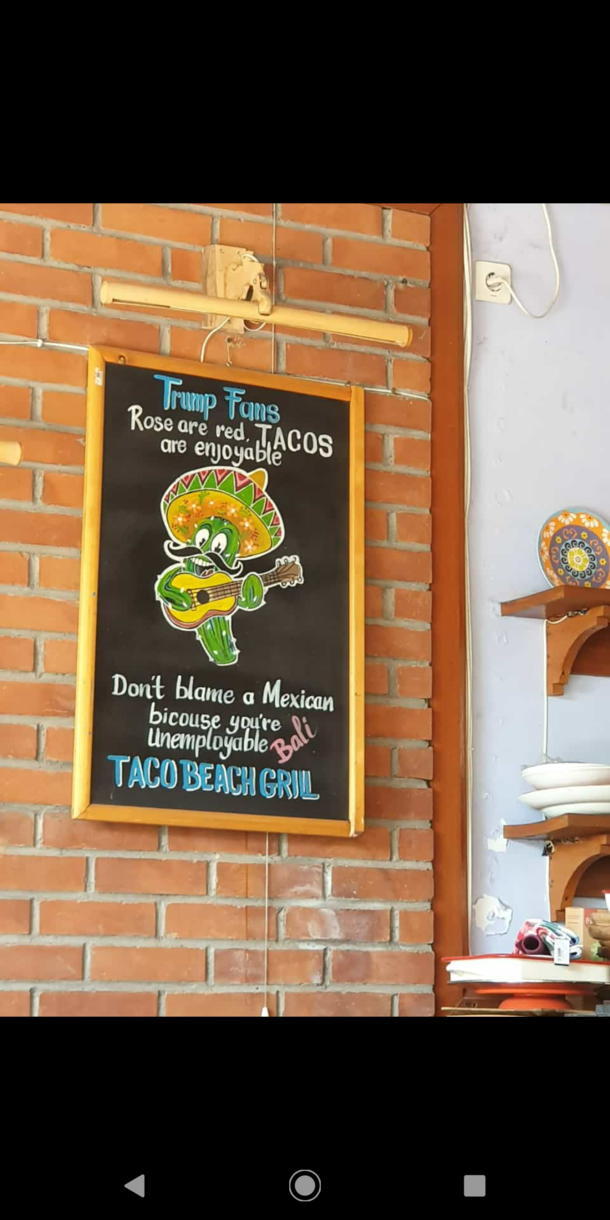 Trump Fans
Rose are red, TACOS
are enjoyable
Don't blame a Mexican
bicouse you're
unemployable Bali
TACO BEACH GRILL